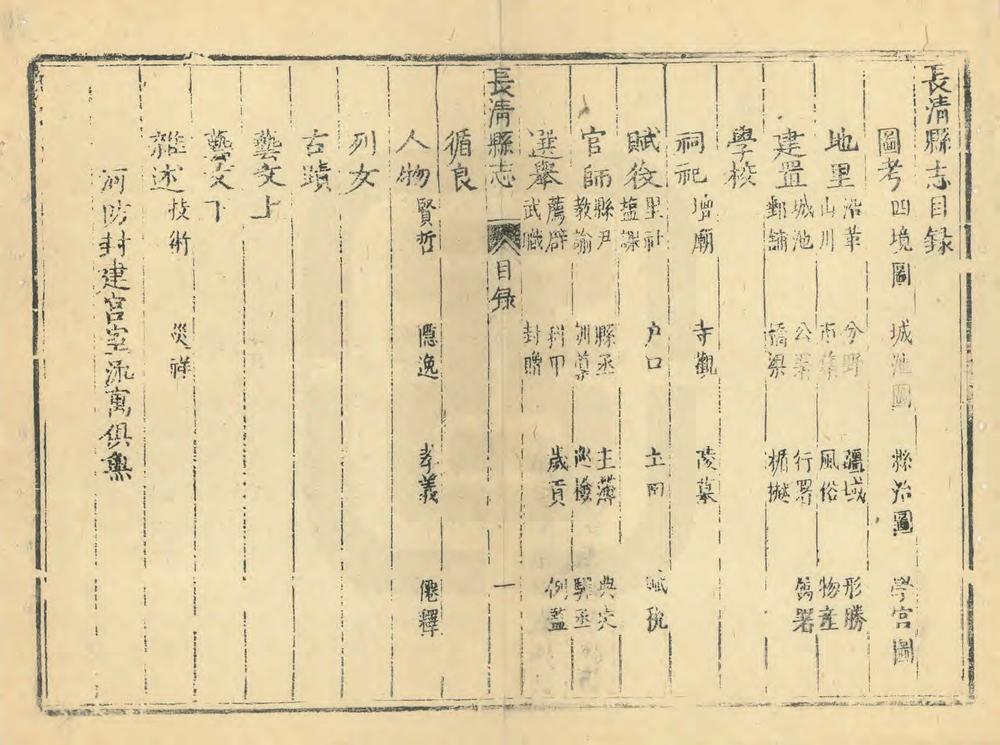 長清縣志目録
圖考 四境圖 城池圖 縣治圖 學宮圖
地里 沿革 分野 疆域 形勝
山川 市集 風俗 物產
建置 城池 公署 行署 舊署
郵舖 橋梁 楯樾
學校
祠祀 壇廟 寺觀 陵墓
賦役 里社 户口 土田 賦稅
鹽課
官師 縣尹 縣丞 主簿 典史
教諭 訓導 巡檢 驛丞
選舉 薦辟 科甲 歲貢 例監
武職 封贈
長清縣志 目録 一
循良
人物 賢哲 隱逸 孝義 僊釋
列女
古蹟
藝文上
藝文下
雜述 技術 災祥
河防封建宮室流寓俱無